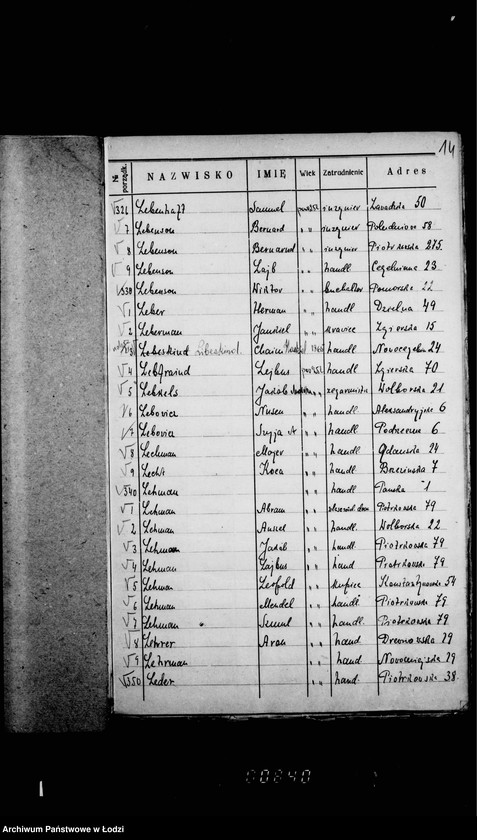 14
№ porządk. NAZWISKO IMIĘ Wiek Zatrudnienie Adres
√326 Lebenhaft Samuel inżynier Zawadzka 50
√7 Lebenson Bernard „ „ inżynier Południowa 58
√8 Lebenson Bernard „ „ inżynier Piotrkowska 275
√9 Lebenson Lajb „ „ handl Cegielniana 23
√330 Lebenson Wiktor „ „ buchalter Pomorska 22
√1 Leber Herman „ „ handl Drelna 49
√2 Leberman Jankiel „ „ krawiec Zgierska 15
Lebeskind Libeskind. Chaim handl Nowocegeln 24
√4 Lebfraind Lejbus handl Zgierska 70
√5 Lebzels Jakób „ zegarmistrz Wolborska 21
√6 Lebovicz Nusen „ „ handl Aleksandryjska 6
√7 Lebovicz Szyja „ „ handl. Podrzeczna 6
√8 Lechman Majer „ „ handl Gdańska 24
√9 Lecht „ „ handl Brzezińska 7
√340 Lehman „ „ handl Pańska 1
√1 Lehman Abram „ „ Piotrkowska 79
√2 Lehman Anszel „ „ handl. Wolborska 22
√3 Lehman Jakób „ „ handl. Piotrkowska 79
√4 Lehman Lajbus „ „ hand Piotrkowska 79
√5 Lehman Leopold „ „ kupiec Konstantynowska 54
√6 Lehman Mendel „ „ handl Piotrkowska 79
√7 Lehman Szmul „ „ handl. Piotrkowska 79
√8 Lehrer Aron „ „ hand Drewnowska 29
√9 Lehrman „ „ hand Nowomiejska 29
√350 Leder „ „ hand. Piotrkowska 38.
00840
Archiwum Państwowe w Łodzi